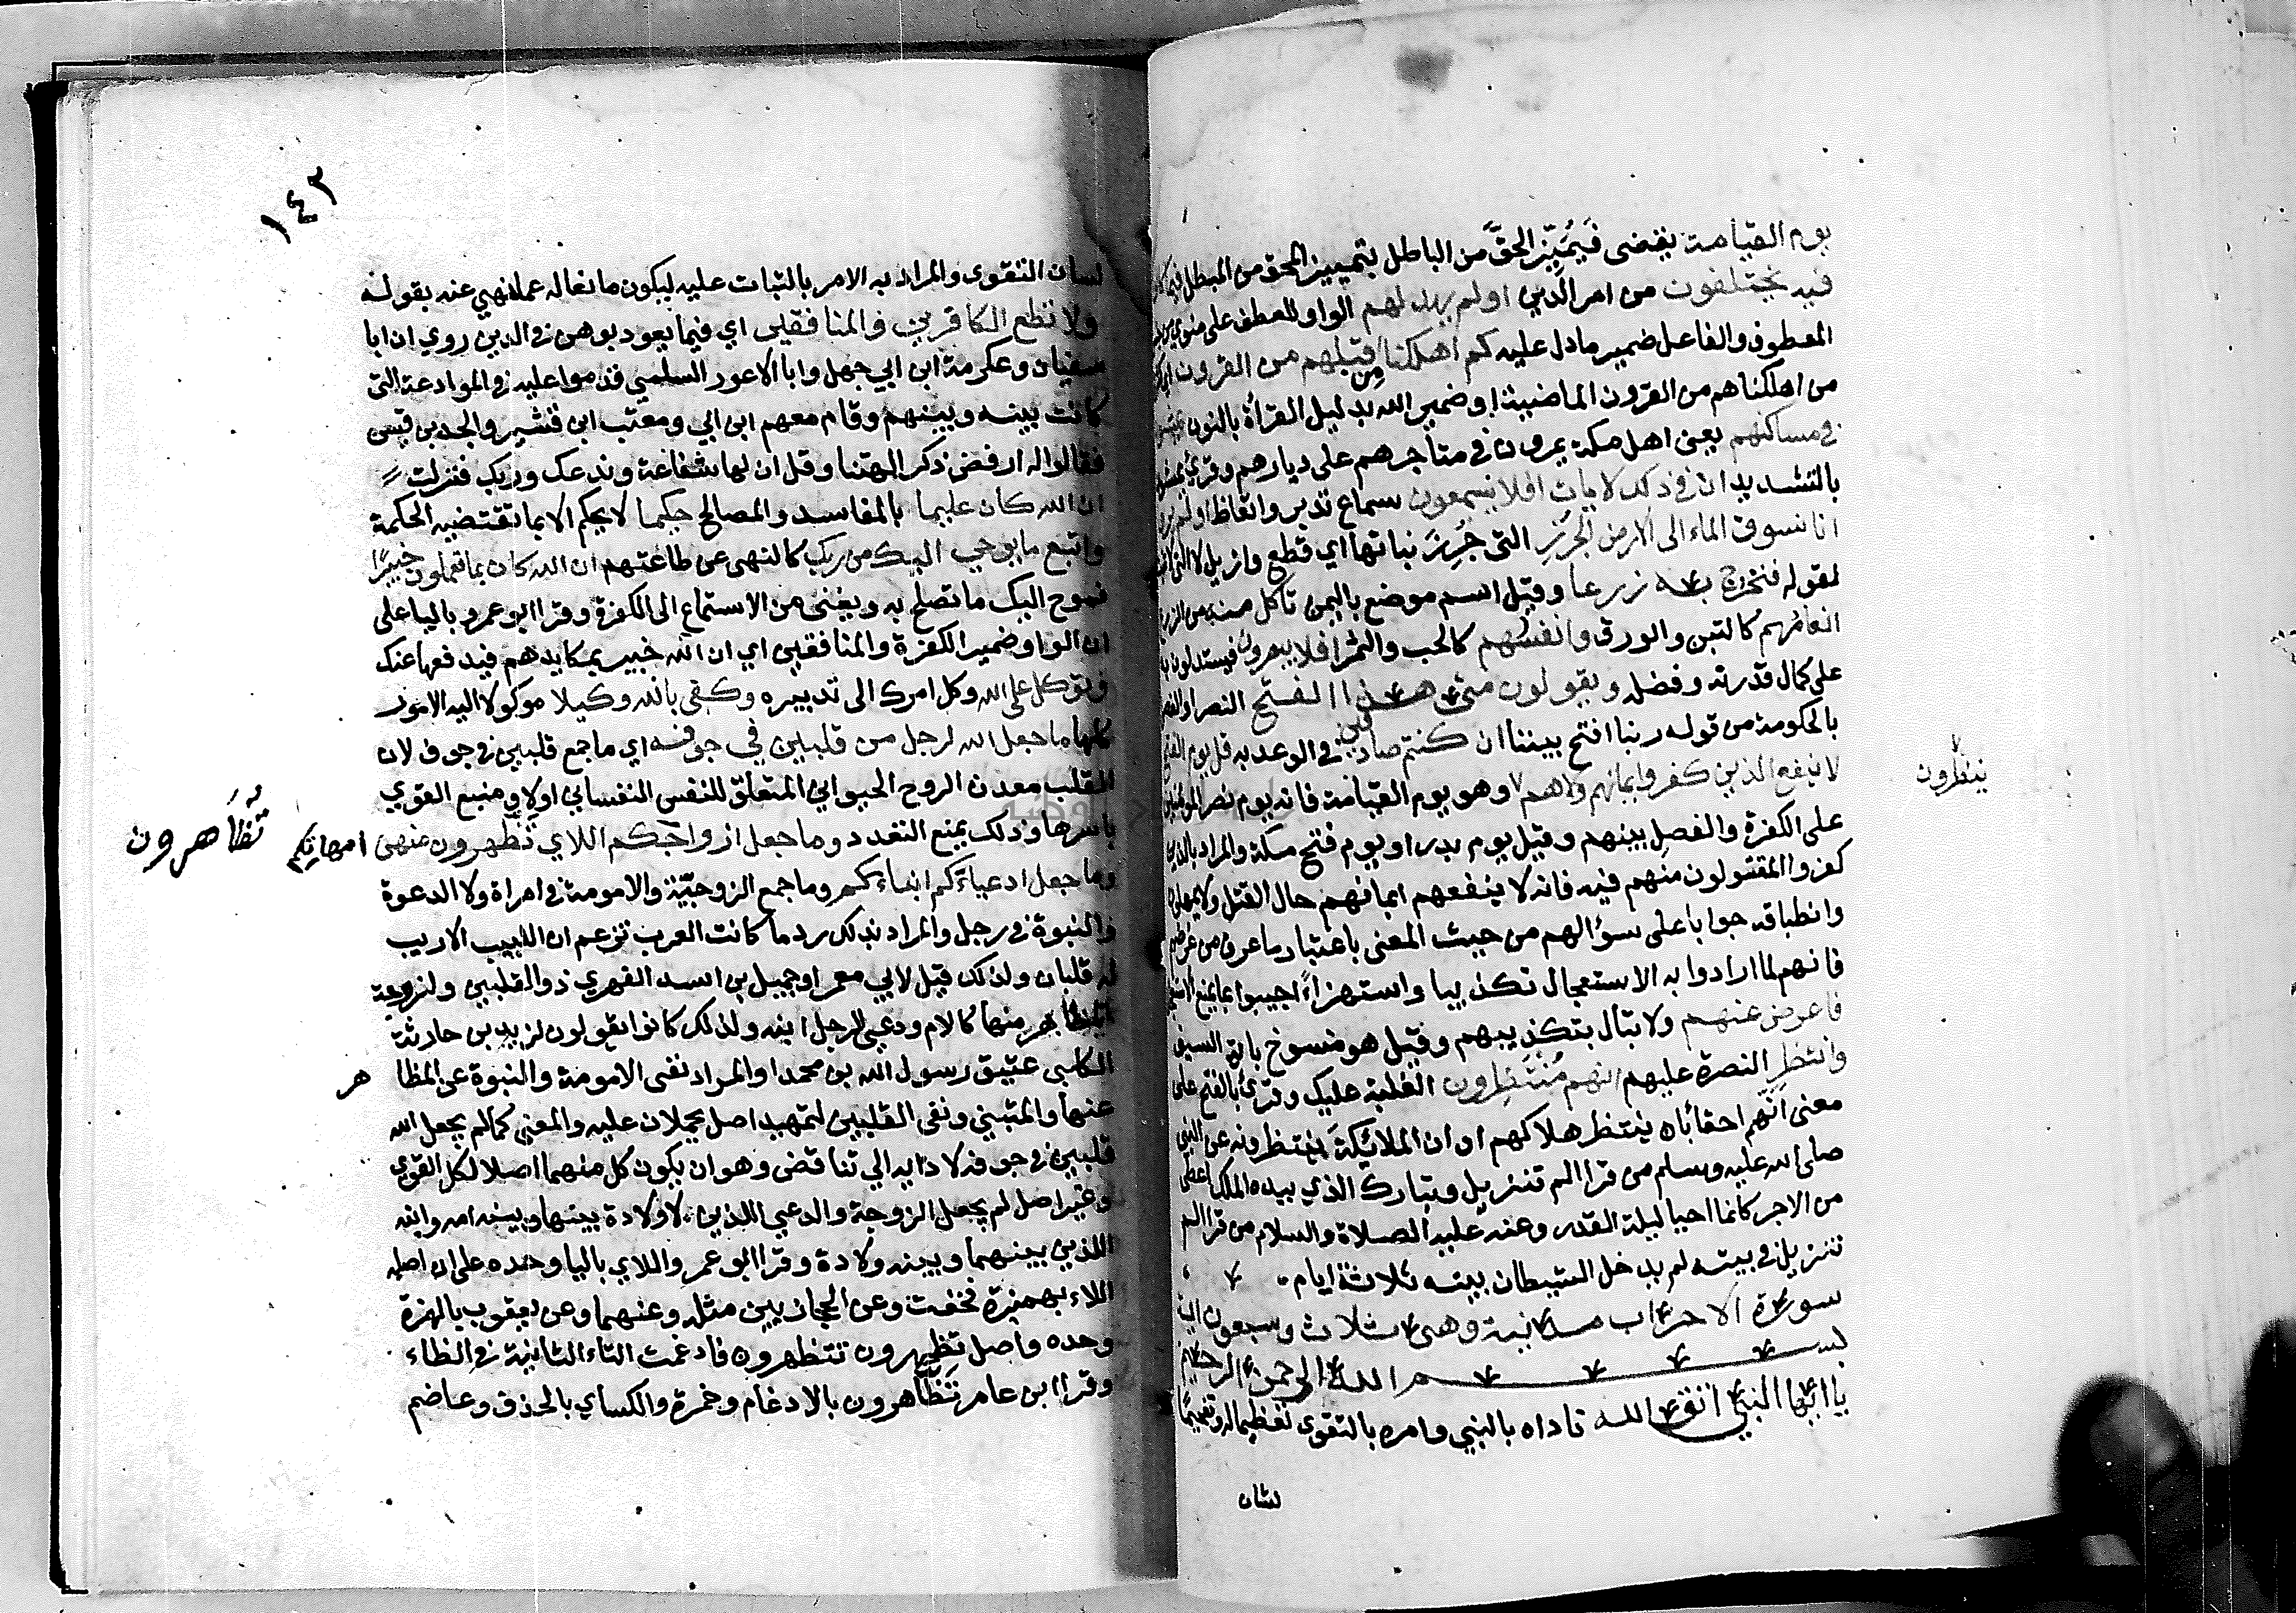 يوم القيامة يقضى فَيُمَيِّز الحقَّ من الباطل بتمييز المحق من المبطل فيما كانوا
فيه يختلفون من امر الدين اولم يهد لهم الواو للعطف على منوي
المعطوف والفاعل ضمير ما دل عليه كم اهلكنا من قبلهم من القرون اي كثرة
من اهلكناهم من القرون الماضية او ضمير الله بدليل القراة بالنون يمشون
في مساكنهم يعني اهل مكة يمرون في متاجرهم على ديارهم وقرئ يمشون
بالتشديد ان في ذلك لايات افلا يسمعون سماع تدبر واتعاظ اولم يروا
انا نسوق الماء الى الارض الجُرُزِ التي جُرِزَ نباتها اي قطع وازيل لا التي
لقوله فنخرج به زرعا وقيل اسم موضع باليمن تاكل منه من الزرع
انعامهم كالتبن والورق وانفسهم كالحب والثمر افلا يبصرون فيستدلون به
على كمال قدرته وفضله ويقولون متى هذا الفتح النصر او الفصل
بالحكومة من قوله ربنا افتح بيننا ان كنتم صادقين في الوعد به قل يوم الفتح
لا ينفع الذين كفروا ايمانهم ولا هم وهو يوم القيامة فانه يوم نصر المؤمنين
ينظرون
على الكفرة والفصل بينهم وقيل يوم بدر او يوم فتح مكة والمراد بالذين
كفروا المقتولون منهم فيه فانه لا ينفعهم ايمانهم حال القتل ولا يمهلون
وانطباقه جوابا على سؤالهم من حيث المعنى باعتبار ما عرف من غرضهم
فانهم لما ارادوا به الاستعجال تكذيبا واستهزاءً اجيبوا بما يمنع
فاعرض عنهم ولا تبال بتكذيبهم وقيل هو منسوخ باية السيف
وانتظر النصرة عليهم انهم مُنْتَظِرون الغلبة عليك وقرئ بالفتح على
معنى انهم احقاء بان ينتظر هلاكهم او ان الملائكة ينتظرونه عن النبي
صلى الله عليه وسلم من قرا الم تنزيل وتبارك الذي بيده الملك اعطي
من الاجر كانما احيا ليلة القدر وعنه عليه الصلاة والسلام من قرا الم
تنزيل في بيته لم يدخل الشيطان بيته ثلاثة ايام
سورة الاحزاب مدنية وهى ثلاث وسبعون اية
بسم الله الرحمن الرحيم
يا ايها النبي اتق الله ناداه بالنبي وامره بالتقوى تعظيما له وتفخيما
لشان
١٤٣
لسان التقوى والمراد به الامر بالثبات عليه ليكون مانعا له عما نهي عنه بقوله
ولا تطع الكافرين والمنافقين اي فيما يعود بوهن في الدين روي ان ابا
سفيان وعكرمة ابن ابي جهل وابا الاعور السلمي قدموا عليه في الموادعة التي
كانت بينه وبينهم وقام معهم ابن ابي ومعتب ابن قشير والجد بن قيس
فقالوا له ارفض ذكر الهتنا وقل ان لها شفاعة وندعك وربك فنزلت
ان الله كان عليما بالمفاسد والمصالح حكيما لا يحكم الا بما تقتضيه الحكمة
واتبع ما يوحي اليك من ربك كالنهى عن طاعتهم ان الله كان بما تعملون خبيرًا
فموح اليك ما تصلح به ويغنى عن الاستماع الى الكفرة وقرا ابو عمرو باليا على
ان الواو ضمير الكفرة والمنافقين اي ان الله خبير بمكايدهم فيدفعها عنك
وتوكل على الله وكل امرك الى تدبيره وكفى بالله وكيلا موكولا اليه الامور
كلها ما جعل الله لرجل من قلبين في جوفه اي ما جمع قلبين في جوف لان
القلب معدن الروح الحيواني المتعلق للنفس النفساني اولا ومنبع القوي
باسرها وذلك يمنع التعدد وما جعل ازواجكم اللاي تظهرون منهن امهاتكم
تُظَاهرون
وما جعل ادعياءكم ابناءكم وما جمع الزوجيّة والامومة في امراة ولا الدعوة
والنبوة في رجل والمراد بذلك رد ما كانت العرب تزعم ان اللبيب الاريب
له قلبان ولذلك قيل لابي معمر او جميل بن اسد الفهري ذو القلبين ولزوجة
المظاهر منها كالام ودعي الرجل ابنه ولذلك كانوا يقولون لزيد بن حارثة
الكلبي عتيق رسول الله بن محمد او المراد نفى الامومة والنبوة عن المظا هر
عنها والمتبني ونفى القلبين لتمهيد اصل يحملان عليه والمعنى كما لم يجعل الله
قلبين في جوفه لادايه الي تناقض وهو ان يكون كل منهما اصلا لكل القوي
وغير اصل لم يجعل الزوجة والدعي اللذين لا ولادة بينها وبينه امه وابنه
اللذين بينهما وبينه ولادة وقرا ابو عمر واللاي باليا وحده على ان اصله
اللاء بهمزة فخففت وعن الحجازيين مثله وعنهما وعن يعقوب بالهمزة
وحده واصل تظهرون تتظهرون فادغمت التاء الثانية في الظاء
وقرا ابن عامر تَظَّاهرون بالادغام وحمزة والكساي بالحذف وعاصم